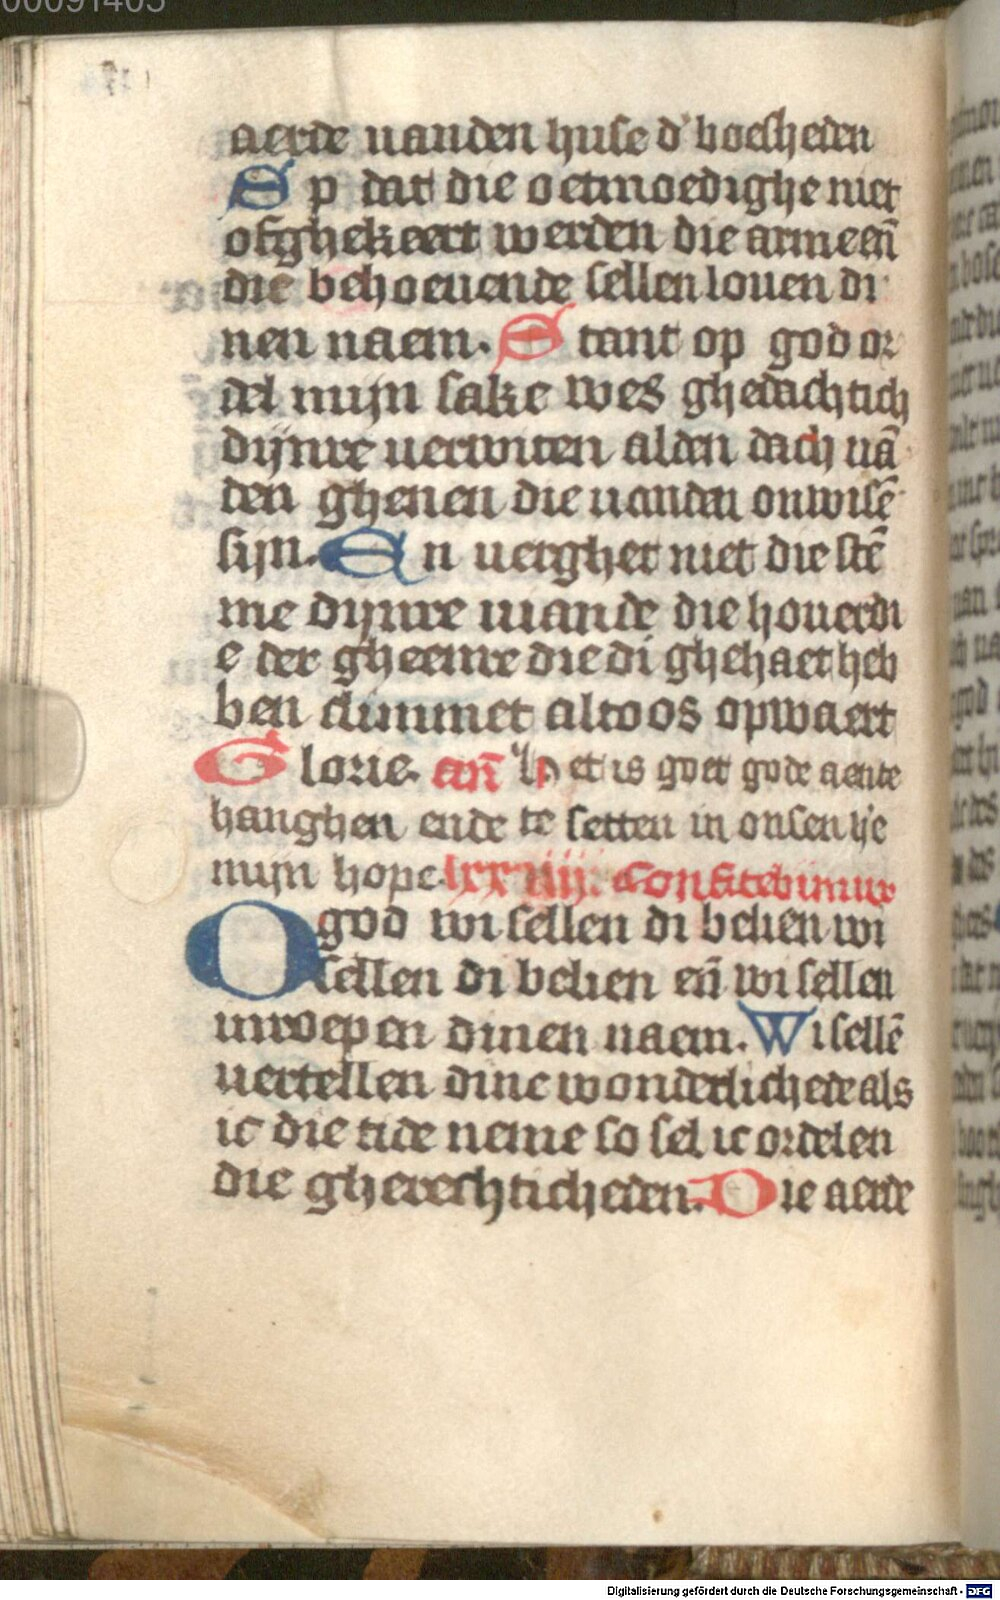 00091405
aerde uanden huse d' boesheden
Sp dat die oetmoedighe niet
ofghekeert werden die arme en̄
die behoeuende sellen louen di
nen naem. Stant op god or
del mijn sake wes ghedachtich
dijnre uerwiten alden dach uā
den ghenen die uanden onwisē
sijn. En uerghet niet die stē
me dijnre uiande die houerdi
e der gheenre die di ghehaet heb
ben climmet altoos opwaert
Glorie. an̄ Het is goet gode aente
hanghen ende te setten in onsen h'e
mijn hope. lxxiiij. Confitebimur
O god wi sellen di belien wi
sellen di belien en̄ wi sellen
inroepen dinen naem. Wi sellē
uertellen dine wonderlichede als
ic die tide neme so sel ic ordelen
die gherechticheden. Die aerde
Digitalisierung gefördert durch die Deutsche Forschungsgemeinschaft - DFG